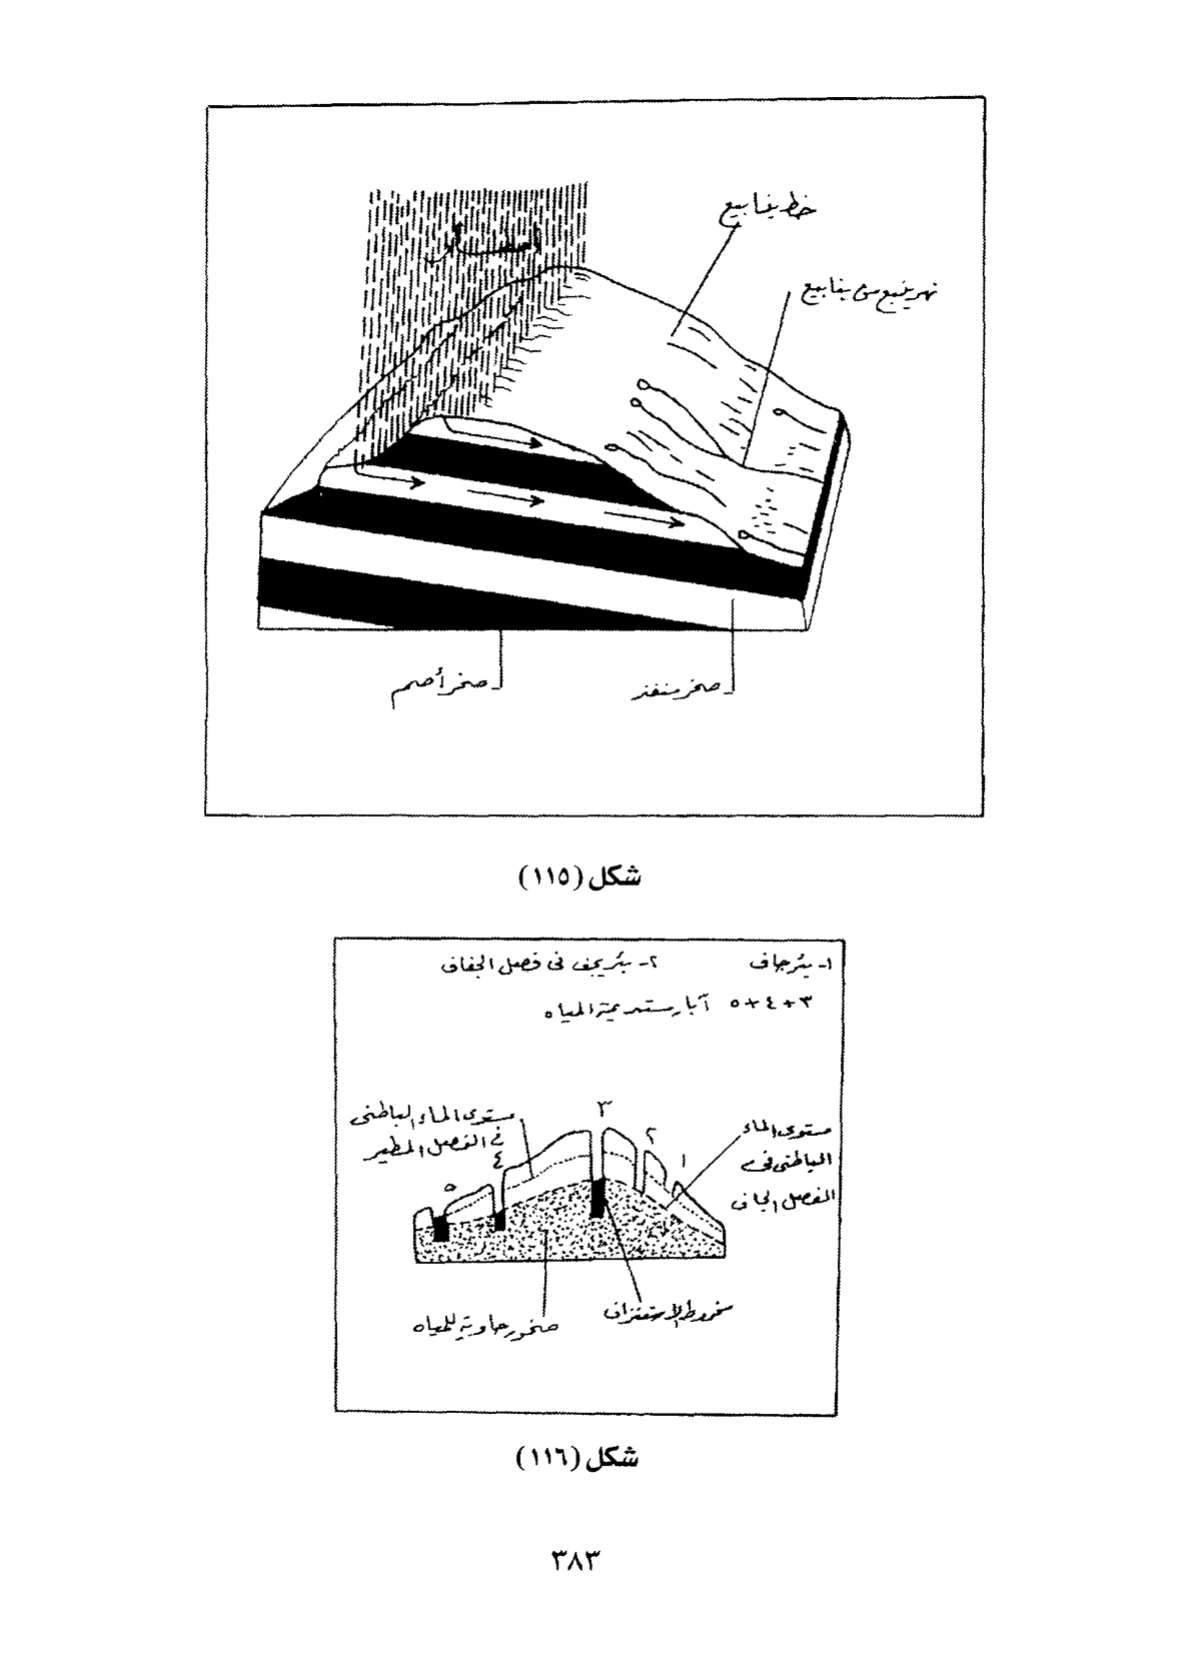 أمطار
خط ينابيع
نهر ينبع من ينابيع
صخر منفذ
صخر أصم
شكل (١١٥)
١- بئر جاف
٢- بئر يجف فى فصل الجفاف
٣+٤+٥ آبار مستديمة المياه
مستوى الماء الباطنى
فى الفصل المطير
٣
٢
١
٤
٥
مستوى الماء
الباطنى فى
الفصل الجاف
مخروط الاستنزاف
صخور حاوية للمياه
شكل (١١٦)
٣٨٣